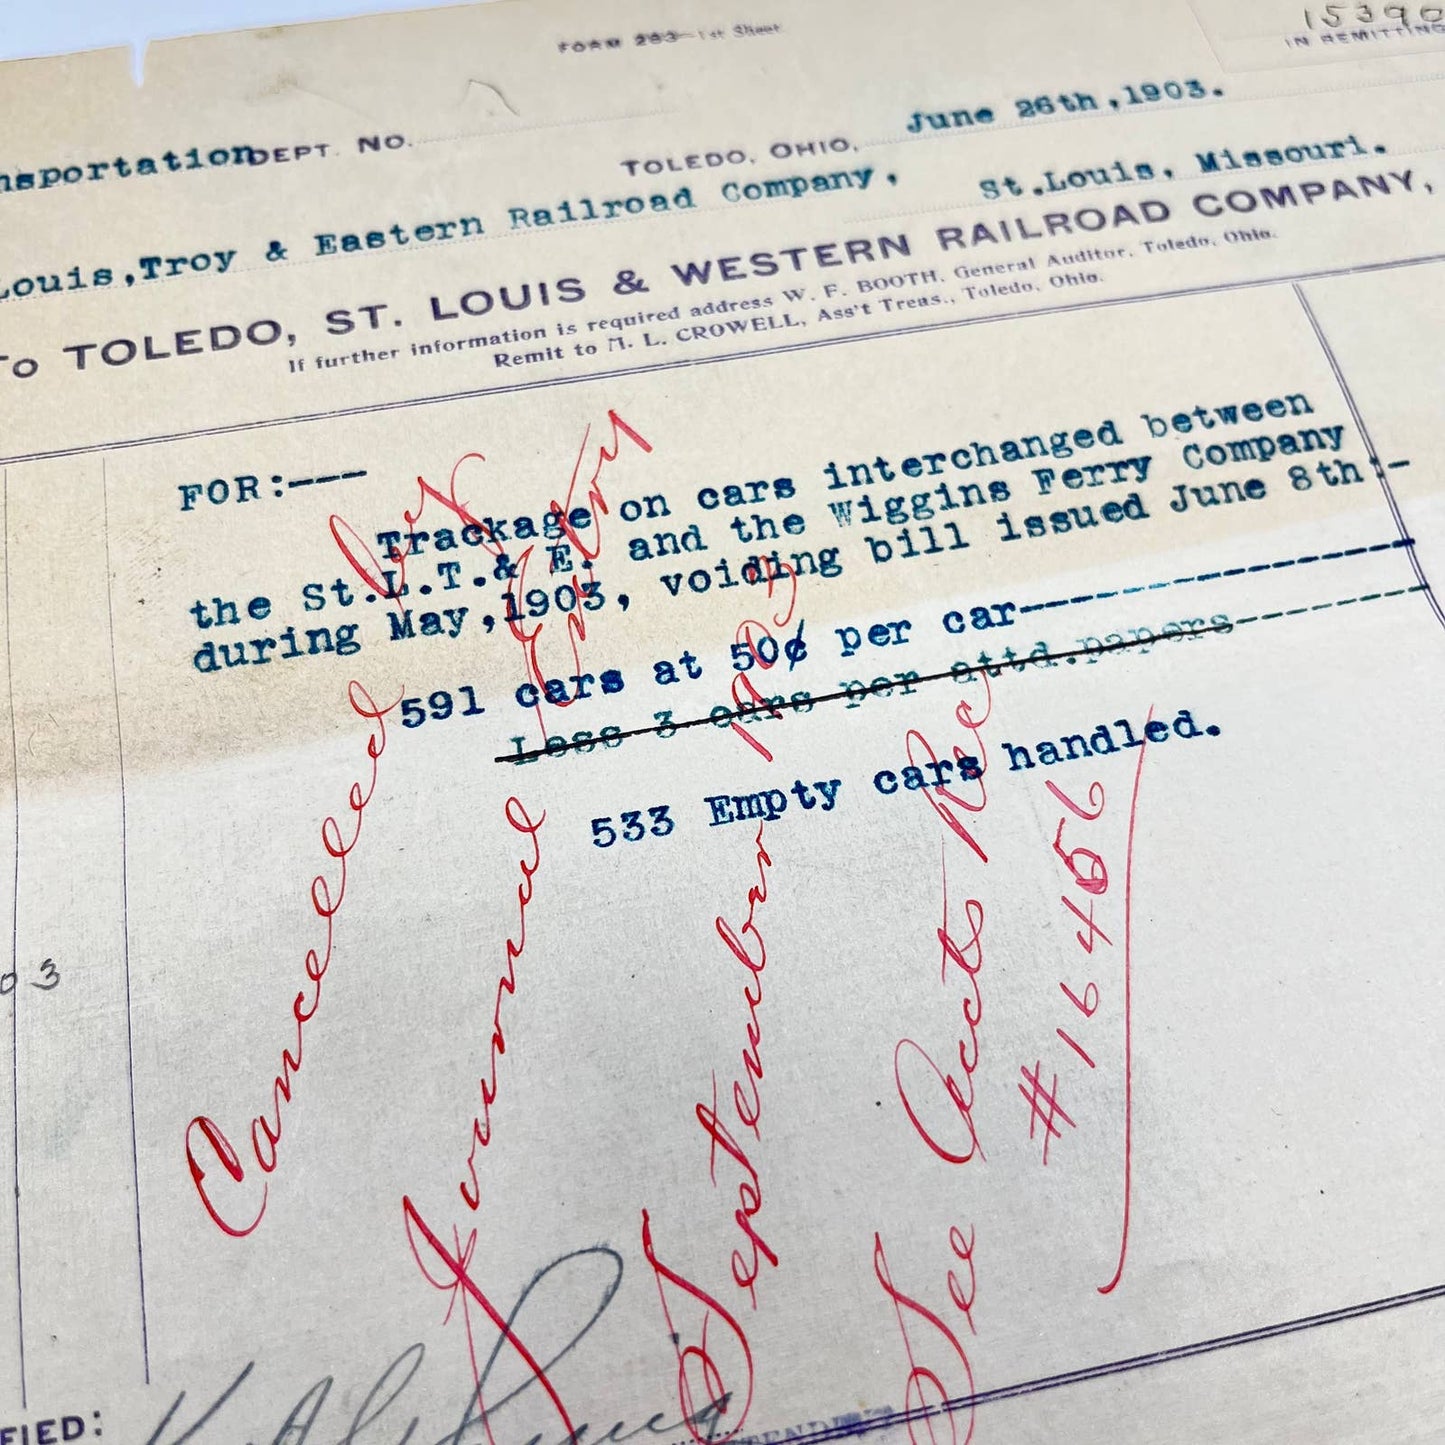 FORM 263—1st Sheet
15390
IN REMITTING
nsportation DEPT. NO.
TOLEDO, OHIO, June 26th,1903.
Louis,Troy & Eastern Railroad Company, St.Louis, Missouri.
To TOLEDO, ST. LOUIS & WESTERN RAILROAD COMPANY,
If further information is required address W. F. BOOTH, General Auditor, Toledo, Ohio.
Remit to M. L. CROWELL, Ass't Treas., Toledo, Ohio.
FOR:---
Trackage on cars interchanged between
the St.L.T.& E. and the Wiggins Ferry Company
during May,1903, voiding bill issued June 8th:-
591 cars at 50¢ per car
Less 3 cars per attd.papers
533 Empty cars handled.
03
Cancelled by
Journal Entry
September 1903
See Acct Rec
#16456
FIED: